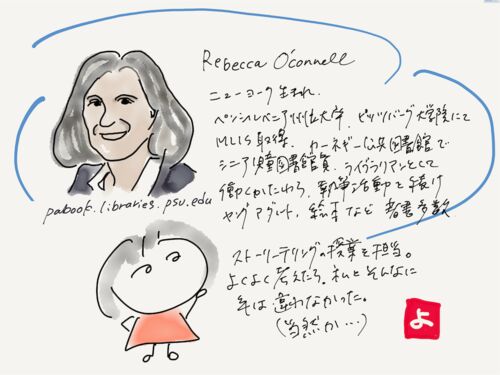 Rebecca O'connell
ニューヨーク生まれ.
ペンシルベニア州立大学, ピッツバーグ大学院にて
MLIS取得. カーネギー公共図書館で
シニア児童図書館員, ライブラリアンとして
働くかたわら, 執筆活動を続け
ヤングアダルト, 絵本など 著書多数
pabook.libraries.psu.edu
ストーリーテリングの授業を担当。
よくよく考えたら, 私とそんなに
年は違わなかった。
(当然か…)
よ